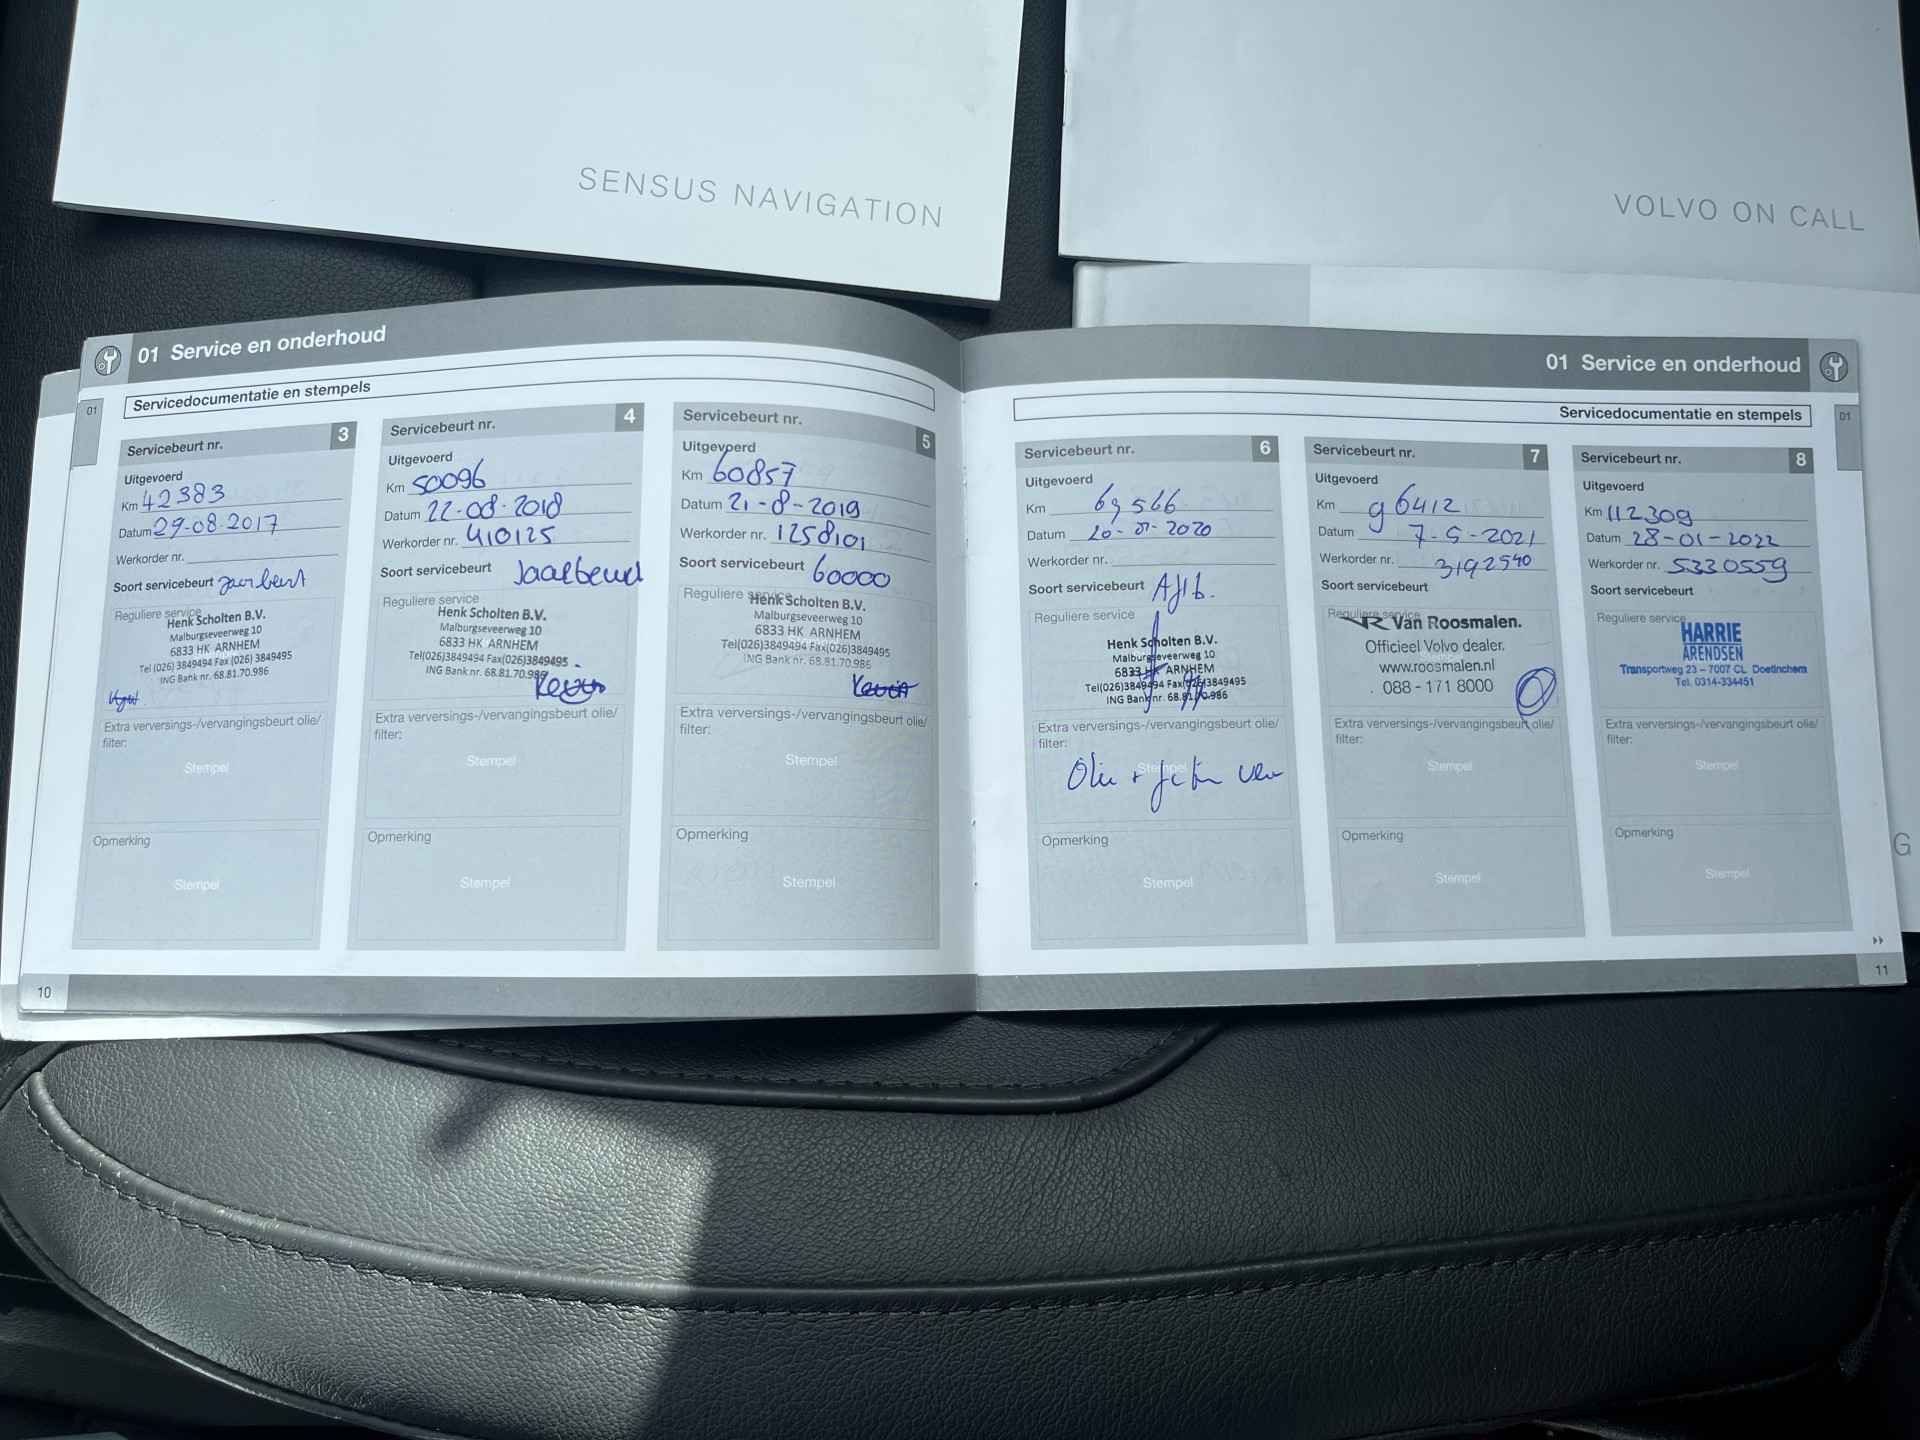 SENSUS NAVIGATION
VOLVO ON CALL
G
01 Service en onderhoud
Servicedocumentatie en stempels
01
Servicebeurt nr. 3
Uitgevoerd
Km 42383
Datum 29-08-2017
Werkorder nr.
Soort servicebeurt
Reguliere service
Henk Scholten B.V.
Malburgseveerweg 10
6833 HK ARNHEM
Tel (026) 3849494 Fax (026) 3849495
ING Bank nr. 68.81.70.986
Extra verversings-/vervangingsbeurt olie/
filter:
Stempel
Opmerking
Stempel
Servicebeurt nr. 4
Uitgevoerd
Km 50096
Datum 22-08-2018
Werkorder nr. 410125
Soort servicebeurt Jaarbeurt
Reguliere service
Henk Scholten B.V.
Malburgseveerweg 10
6833 HK ARNHEM
Tel(026)3849494 Fax(026)3849495
ING Bank nr. 68.81.70.986
Kevin
Extra verversings-/vervangingsbeurt olie/
filter:
Stempel
Opmerking
Stempel
Servicebeurt nr. 5
Uitgevoerd
Km 60857
Datum 21-8-2019
Werkorder nr. 1258101
Soort servicebeurt 60000
Reguliere service
Henk Scholten B.V.
Malburgseveerweg 10
6833 HK ARNHEM
Tel(026)3849494 Fax(026)3849495
ING Bank nr. 68.81.70.986
Kevin
Extra verversings-/vervangingsbeurt olie/
filter:
Stempel
Opmerking
Stempel
10
01 Service en onderhoud
Servicedocumentatie en stempels
01
Servicebeurt nr. 6
Uitgevoerd
Km 69566
Datum 20-01-2020
Werkorder nr.
Soort servicebeurt Aflb.
Reguliere service
Henk Scholten B.V.
Malburgseveerweg 10
6833 HK ARNHEM
Tel(026)3849494 Fax(026)3849495
ING Bank nr. 68.81.70.986
Extra verversings-/vervangingsbeurt olie/
filter:
Stempel
Olie +
Opmerking
Stempel
Servicebeurt nr. 7
Uitgevoerd
Km 96412
Datum 7-5-2021
Werkorder nr. 3192540
Soort servicebeurt
Reguliere service
VR Van Roosmalen.
Officieel Volvo dealer.
www.roosmalen.nl
088 - 171 8000
Extra verversings-/vervangingsbeurt olie/
filter:
Stempel
Opmerking
Stempel
Servicebeurt nr. 8
Uitgevoerd
Km 112309
Datum 28-01-2022
Werkorder nr. 5330559
Soort servicebeurt
Reguliere service
HARRIE
ARENDSEN
Transportweg 23 – 7007 CL Doetinchem
Tel. 0314-334451
Extra verversings-/vervangingsbeurt olie/
filter:
Stempel
Opmerking
Stempel
11